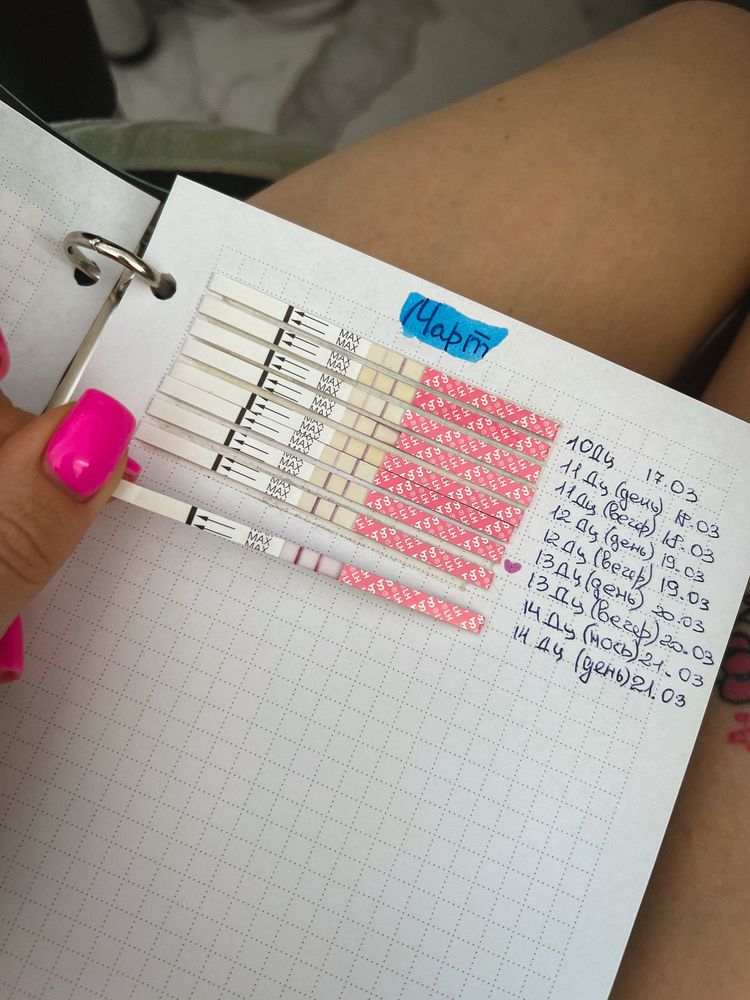 Март
MAX
MAX
MAX
MAX
MAX
MAX
MAX
MAX
MAX
MAX
MAX
MAX
MAX
MAX
LH
10 Дц 17.03
11 Дц (день) 18.03
11 Дц (вечер) 18.03
12 Дц (день) 19.03
12 Дц (вечер) 19.03
13 Дц (день) 20.03
13 Дц (вечер) 20.03
14 Дц (ночь) 21.03
14 Дц (день) 21.03